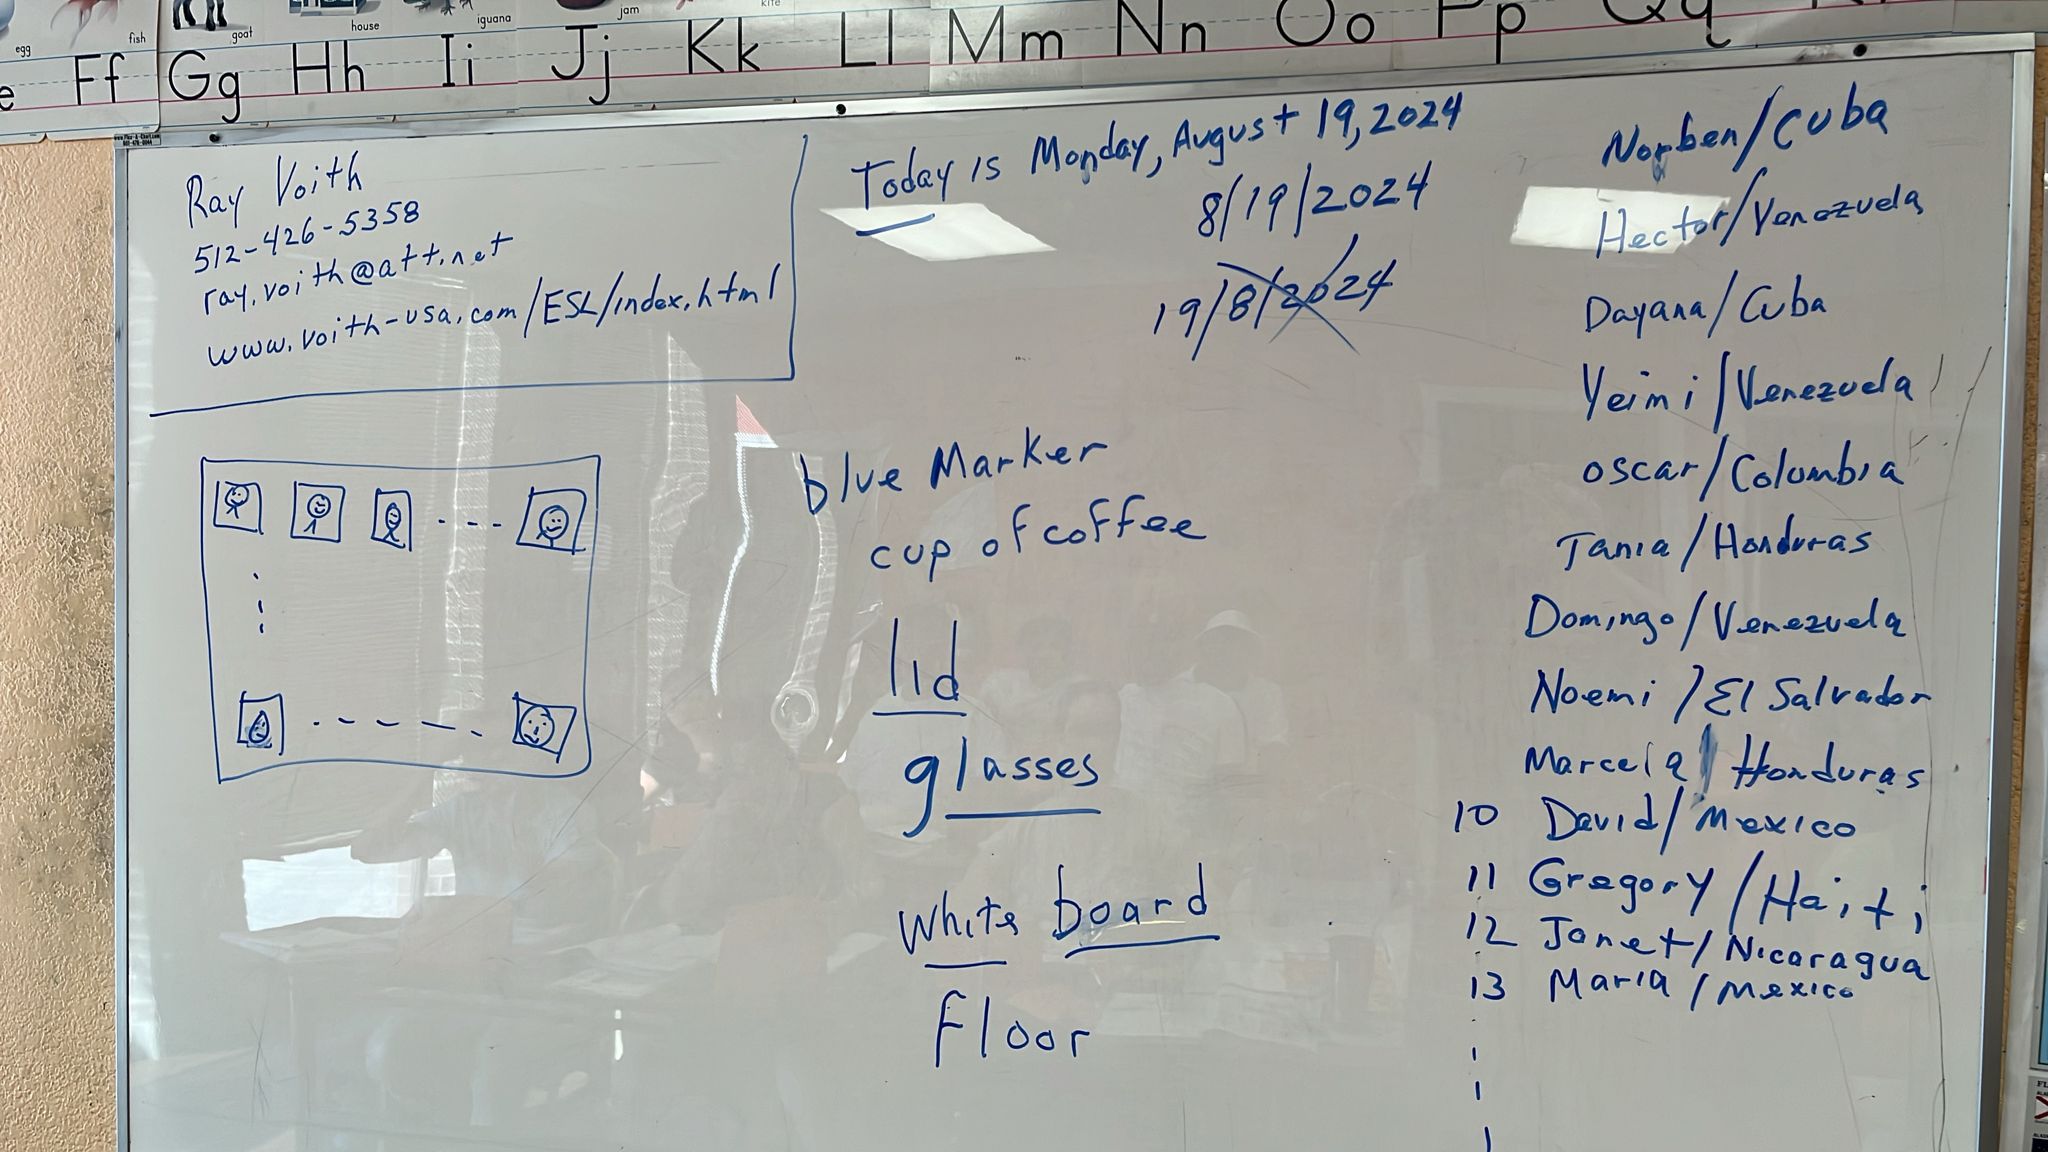 egg
fish
goat
house
iguana
jam
kite
e Ff Gg Hh Ii Jj Kk Ll Mm Nn Oo Pp Qq
Ray Voith
512-426-5358
ray.voith@att.net
www.voith-usa.com/ESL/index.html
Today is Monday, August 19, 2024
8/19/2024
19/8/2024
blue Marker
cup of coffee
lid
glasses
white board
floor
Norben/Cuba
Hector/Venezuela
Dayana/Cuba
Yeimi/Venezuela
Oscar/Columbia
Tania/Honduras
Domingo/Venezuela
Noemi/El Salvador
Marcela/Honduras
10 David/Mexico
11 Gregory/Haiti
12 Janet/Nicaragua
13 Maria/Mexico